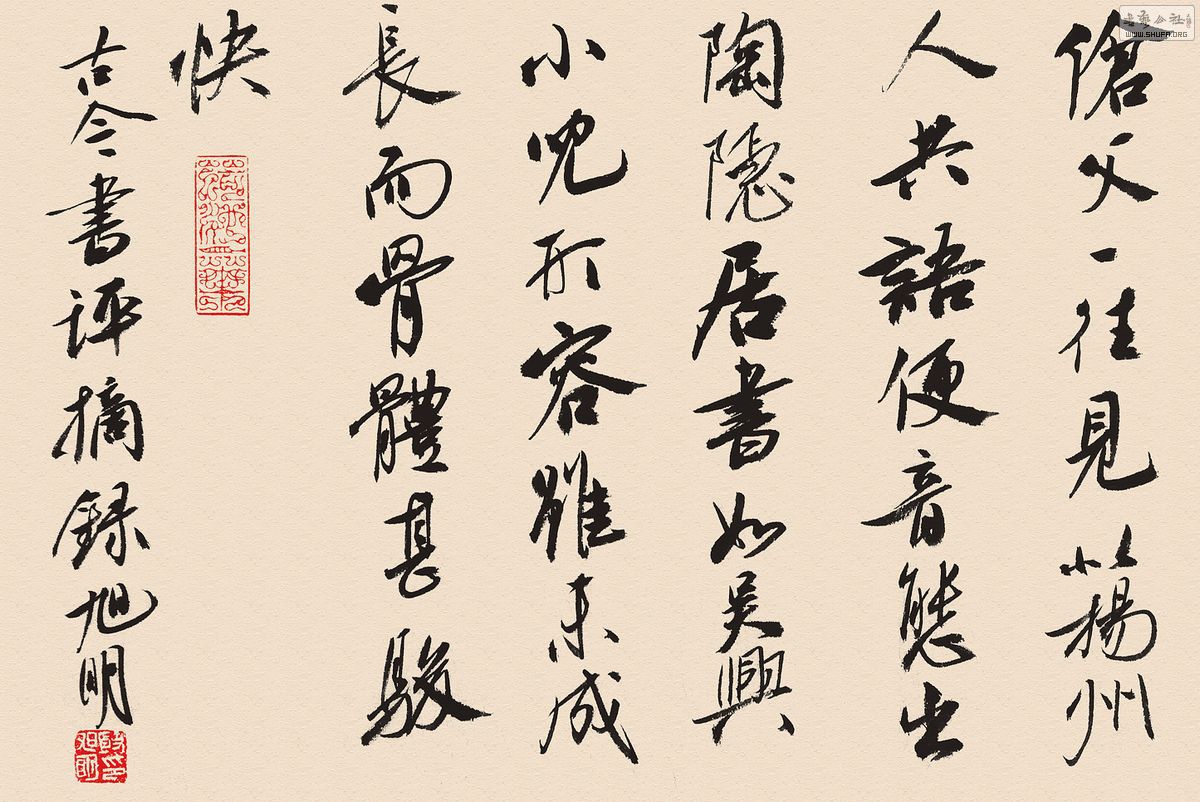 傖父一往見小楊州
人共語便音態出
陶隱居書如吳興
小兒形容雖未成
長而骨體甚駿
快
古今書评摘録旭明
WWW.SHUFA.ORG